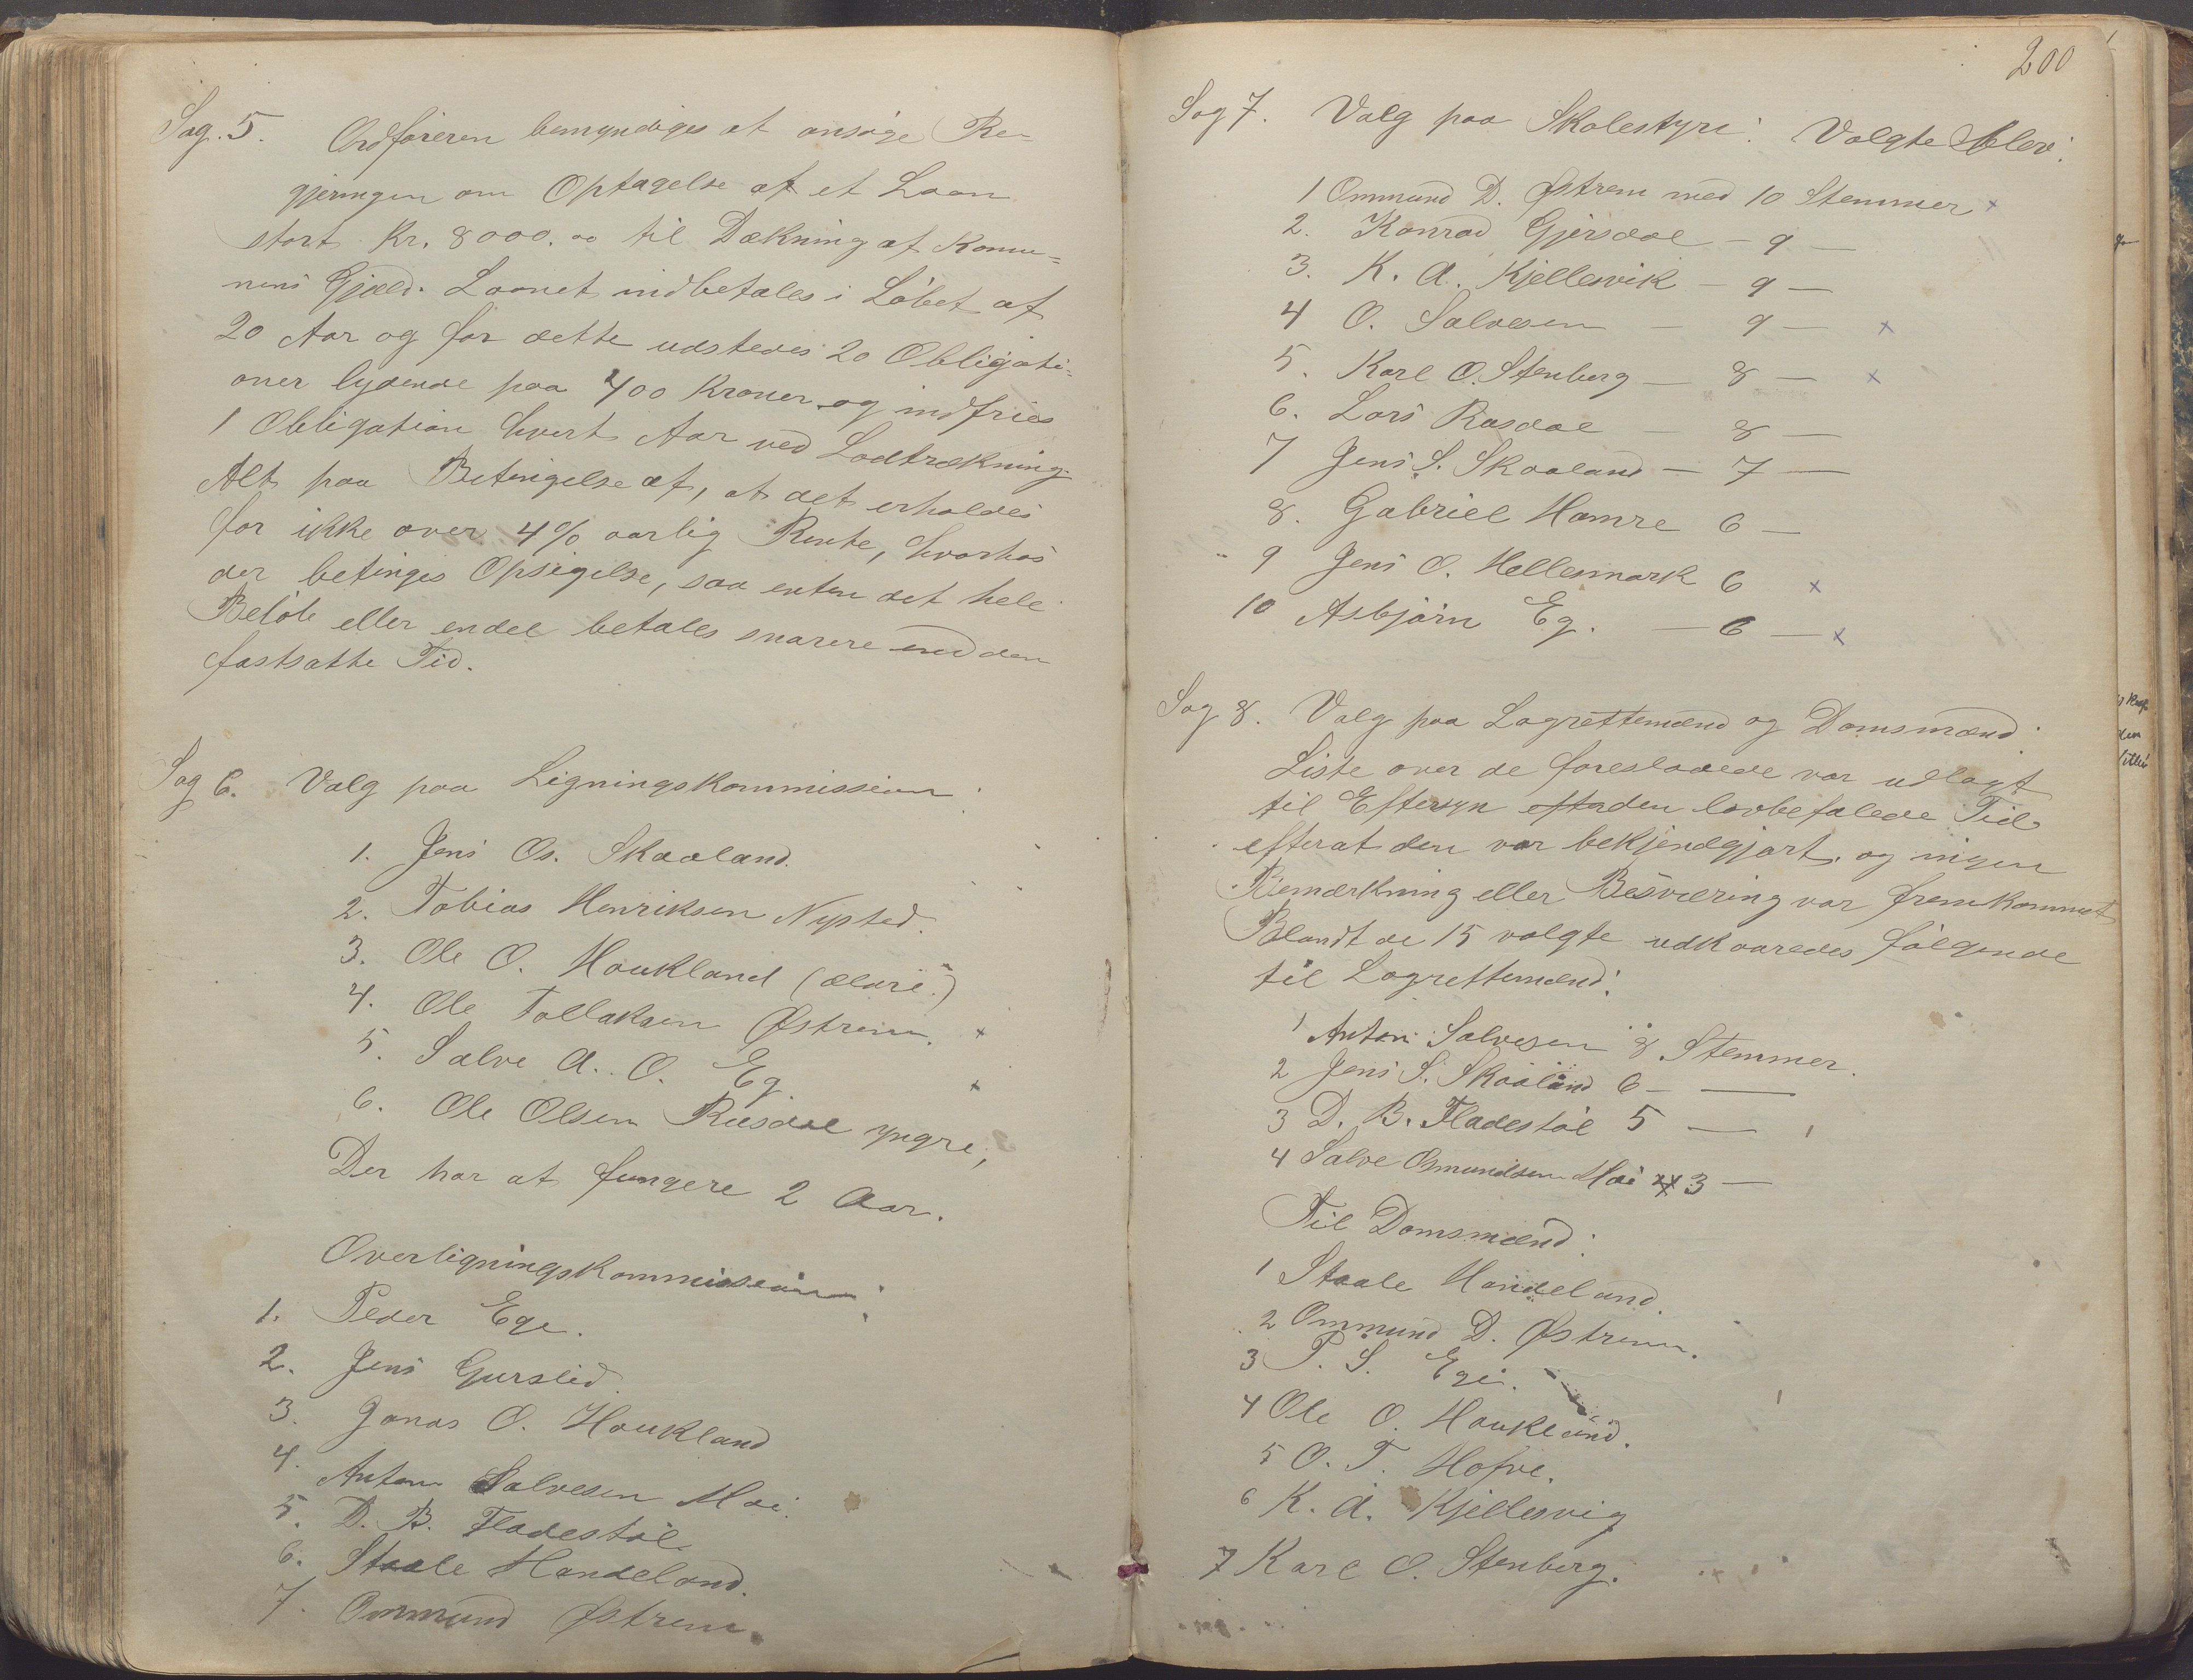 Sag. 5. Ordføreren bemyndiges at ansøge Re-
gjeringen om Optagelse af et Laan
stort Kr. 8000.00 til Dækning af Komu=
nens Gjæld. Laanet indbetales i Løbet af
20 Aar og for dette udstedes 20 Obligati=
oner lydende paa 400 Kroner og indfries
1 Obligation hvert Aar ved Lodtrækning.
Alt paa Betingelse af, at det erholdes
for ikke over 4% aarlig Rente, hvorhos
der betinges Opsigelse, saa enten det hele
Beløb eller endel betales snarere end den
fastsatte Tid.
Sag 6. Valg paa Ligningskommission:
1. Jens Os. Skaaland.
2. Tobias Henriksen Nysted.
3. Ole O. Haukland (ældre.)
4. Ole Tollaksen Østrem. x
5. Salve A. O. Eg x
6. Ole Olsen Rusdal yngre,
Der har at fungere 2 Aar.
Overligningskommission:
1. Peder Ege.
2. Jens Gurslid.
3. Jonas O. Haukland
4. Anton Salvesen Moi.
5. D. B. Fladestøl
6. Staale Handeland.
7. Ommund Østrem.
200
Sag 7. Valg paa Skolestyre: Valgte blev:
1 Ommund D. Østrem med 10 Stemmer x
2. Konrad Gjersdal - 9 -
3. K. A. Kjellesvik - 9 -
4 O. Salvesen - 9 - x
5. Karl O. Stenberg - 8 - x
6. Lars Rusdal - 8 -
7 Jens S. Skaaland - 7 -
8. Gabriel Hamre 6 -
9 Jens O. Hellesmark 6 x
10 Asbjørn Eg. - 6 - x
Sag 8. Valg paa Lagrettemænd og Domsmænd.
Liste over de foreslaaede var udlagt
til Eftersyn den lovbefalede Tid
efterat den var bekjendgjort, og ingen
Bemærkning eller Besværing var fremkommet
Blandt de 15 valgte udkaaredes følgende
til Lagrettemænd:
1 Anton Salvesen 8 Stemmer.
2 Jens S. Skaaland 6 - -
3 D. B. Fladestøl 5 -
4 Salve Osmundsen Moi 3 -
Til Domsmænd:
1 Staale Handeland.
2 Ommund D. Østrem.
3 P. S. Ege.
4 Ole O. Haukland.
5 O. T. Hofve.
6 K. A. Kjellesvig
7 Karl O. Stenberg.